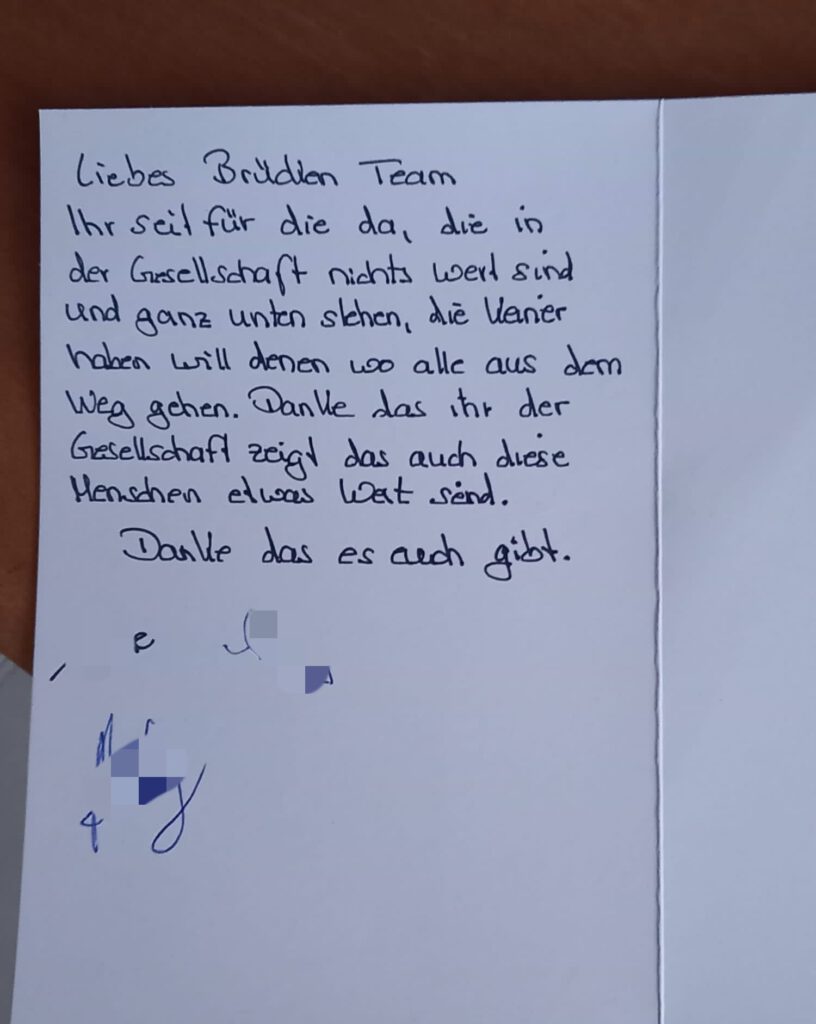 Liebes Brüdlen Team
Ihr seit für die da, die in
der Gesellschaft nichts wert sind
und ganz unten stehen, die keiner
haben will denen wo alle aus dem
Weg gehen. Danke das ihr der
Gesellschaft zeigt das auch diese
Menschen etwas Wert send.
Danke das es auch gibt.